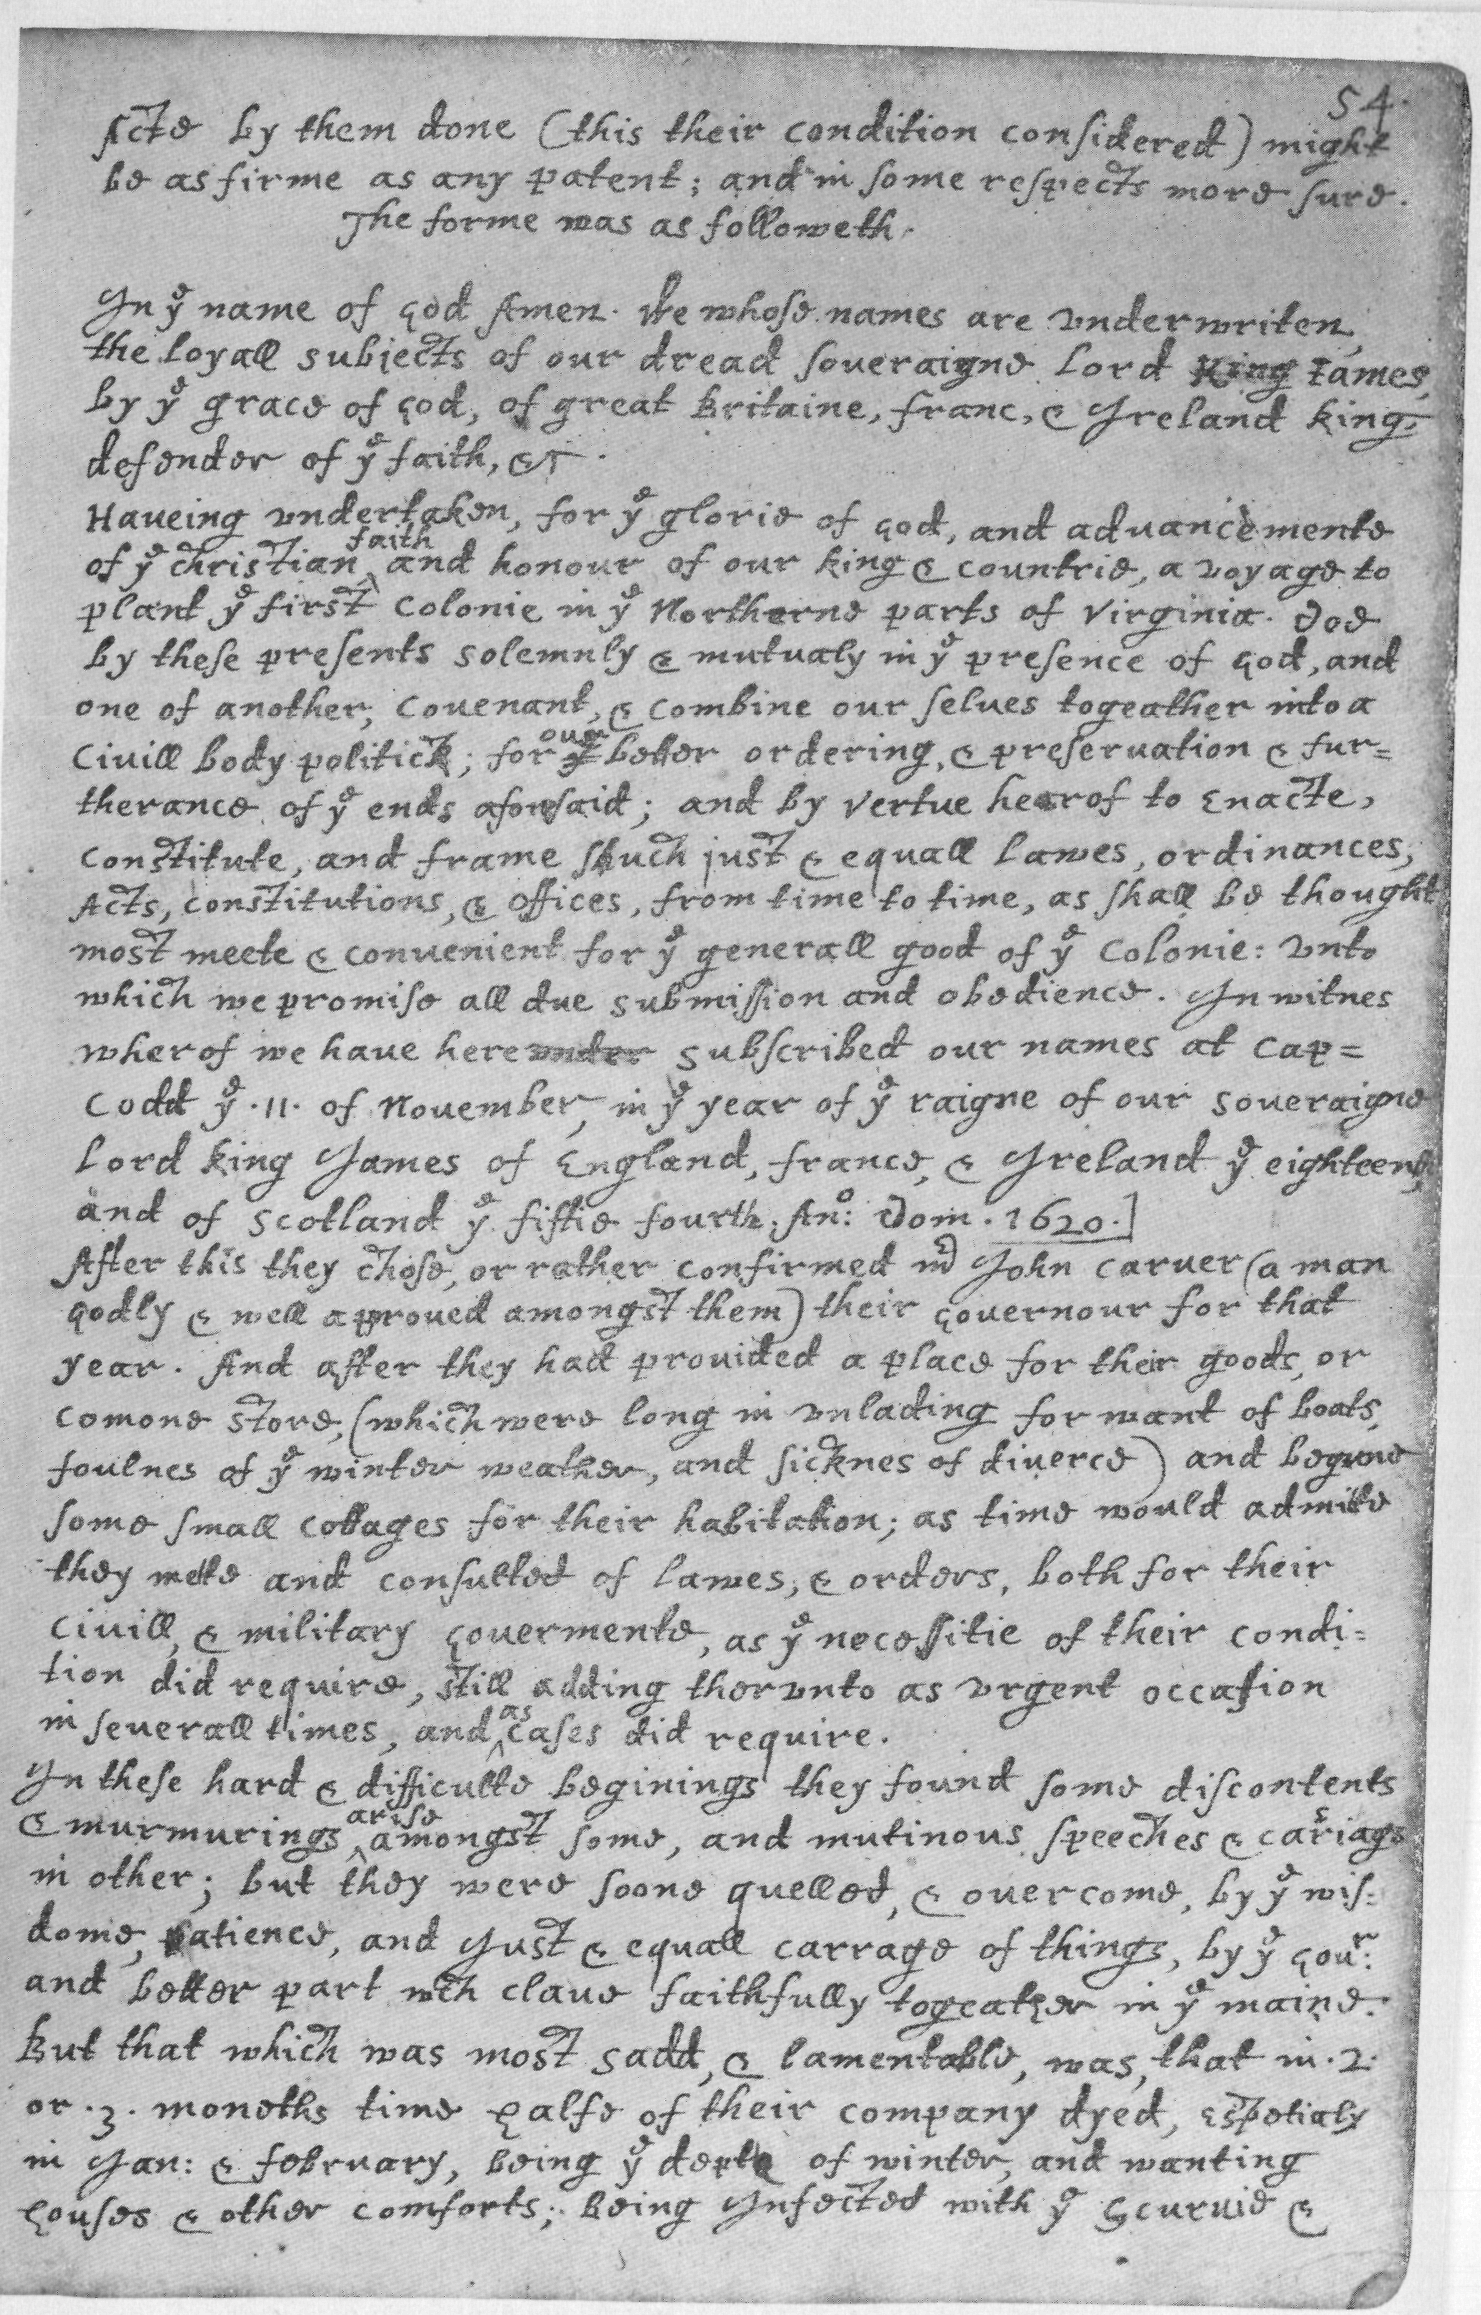 54.
Acte by them done (this their condition considered) might
be as firme as any patent; and in some respects more sure.
The forme was as followeth.
In yᵉ name of god Amen. We whose names are vnderwriten,
the loyall subjects of our dread soueraigne Lord King Iames,
by yᵉ grace of god, of great Britaine, franc, & Ireland king,
defender of yᵉ faith, &c.
Haueing vndertaken, for yᵉ glorie of god, and aduancemente
of yᵉ christian ^faith and honour of our king & countrie, a voyage to
plant yᵉ first colonie in yᵉ Northerne parts of Virginia. Doe
by these presents solemnly & mutualy in yᵉ presence of god, and
one of another, couenant, & combine our selues togeather into a
Ciuill body politick; for our better ordering, & preseruation & fur=
therance of yᵉ ends aforesaid; and by vertue hearof to Enacte,
constitute, and frame shuch just & equall lawes, ordinances,
Acts, constitutions, & offices, from time to time, as shall be thought
most meete & conuenient for yᵉ generall good of yᵉ colonie: vnto
which we promise all due submission and obedience. In witnes
wherof we haue here vnder subscribed our names at cap=
Codd yᵉ .11. of Nouember, in yᵉ year of yᵉ raigne of our soueraigne
Lord king James of England, france, & Ireland yᵉ eighteenth
and of scotland yᵉ fiftie fourth. Anᵒ: Dom. 1620.]
After this they chose, or rather confirmed mʳ John caruer (a man
godly & well approued amongst them) their gouernour for that
year. And after they had prouided a place for their goods, or
comone store, (which were long in vnlading for want of boats,
foulnes of yᵉ winter weather, and sicknes of diuerce) and begune
some small cottages for their habitation; as time would admitte
they mette and consulted of lawes, & orders, both for their
ciuill, & military gouermente, as yᵉ necessitie of their condi=
tion did require, still adding thervnto as vrgent occasion
in seuerall times, and ^as cases did require.
In these hard & difficulte beginings they found some discontents
& murmurings ^arise amongst some, and mutinous speeches & cariags
in other; but they were soone quelled, & ouercome, by yᵉ wis=
dome, patience, and Just & equall carrage of things, by yᵉ gouʳ:
and better part wch claue faithfully togeather in yᵉ maine.
But that which was most sadd, & lamentable, was, that in .2.
or .3. moneths time halfe of their company dyed, espetialy
in Jan: & february, being yᵉ depth of winter, and wanting
houses & other comforts; being Infected with yᵉ Scuruie &